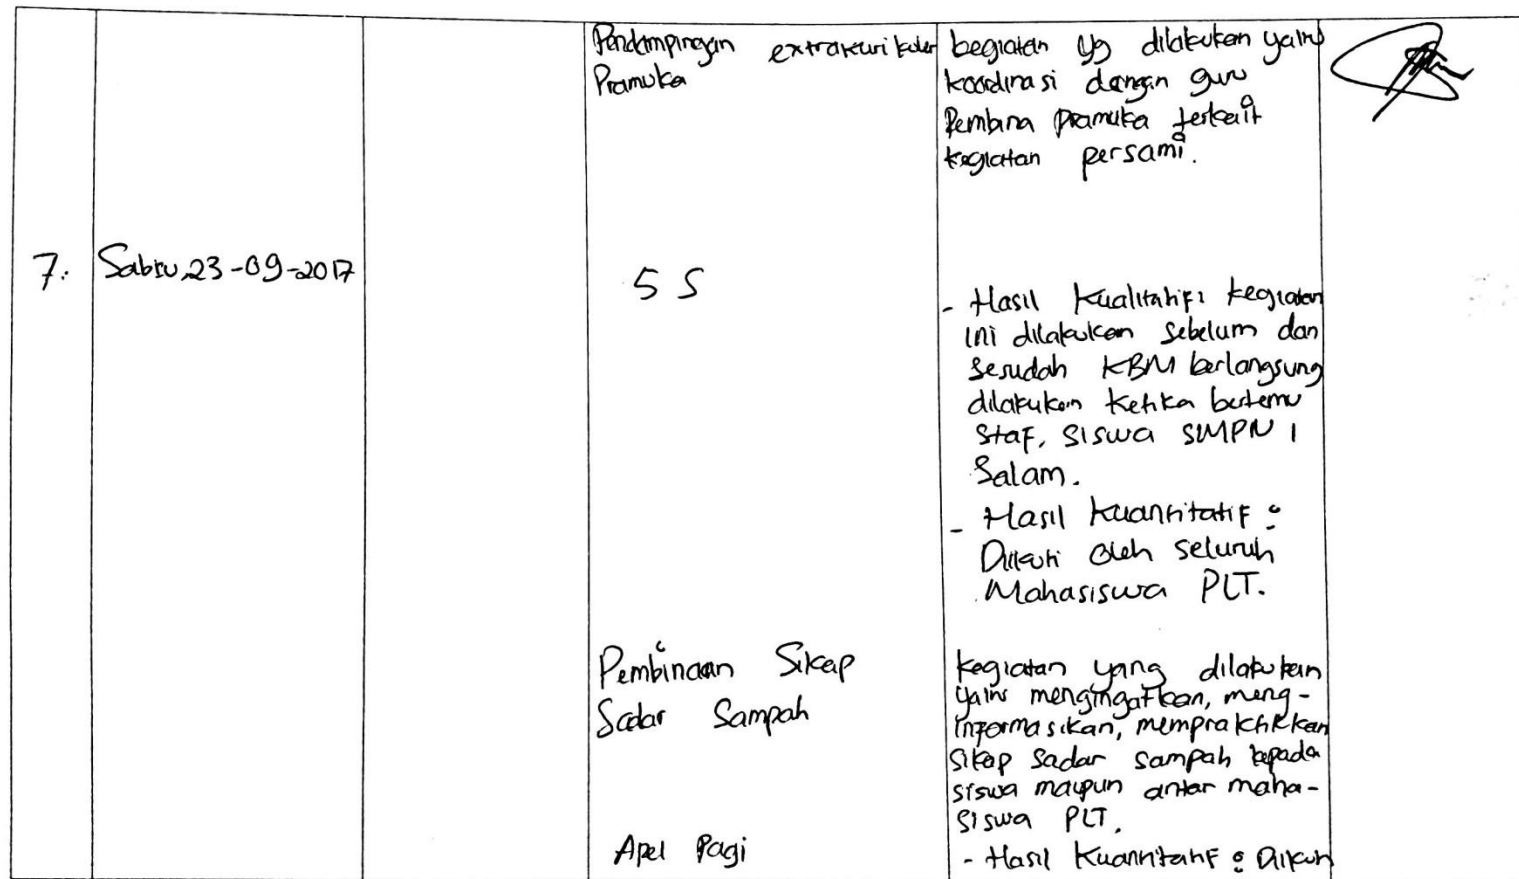 Pendampingan extrakurikuler
Pramuka
kegiatan yg dilakukan yaitu
koordinasi dengan guru
Pembina pramuka terkait
kegiatan persami.
7. Sabtu, 23-09-2017
5 S
- Hasil Kualitatif: kegiatan
ini dilakukan sebelum dan
sesudah KBM berlangsung
dilakukan ketika bertemu
staf, siswa SMPN 1
Salam.
- Hasil Kuantitatif :
Diikuti oleh seluruh
Mahasiswa PLT.
Pembinaan Sikap
Sadar Sampah
kegiatan yang dilakukan
yaitu mengingatkan, meng-
informasikan, mempraktikkan
sikap sadar sampah kepada
siswa maupun antar maha-
siswa PLT.
Apel Pagi
- Hasil Kuantitatif : Diikuti